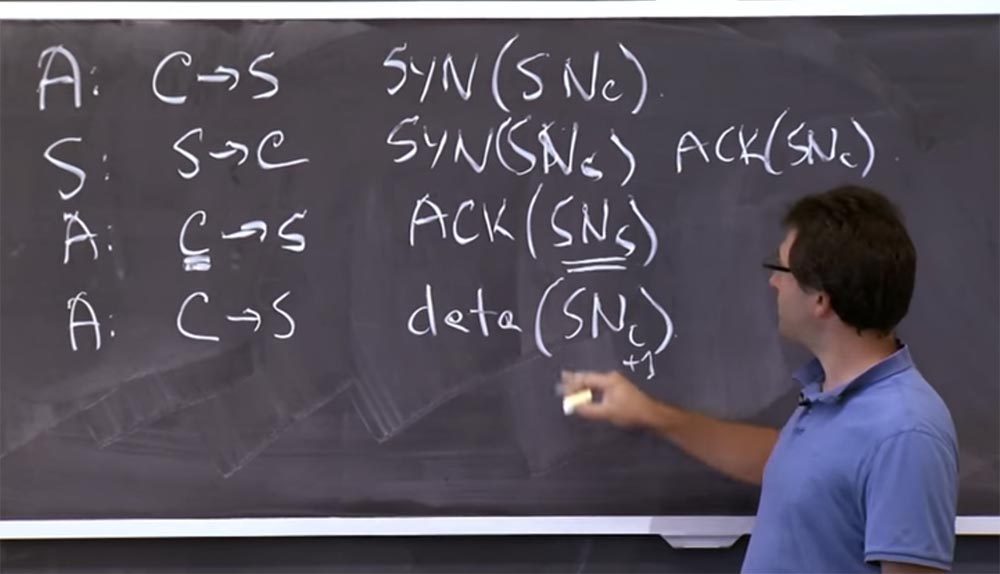 A: C→S SYN(SNc).
S: S→C SYN(SNs) ACK(SNc).
A: C→S ACK(SNs)
A: C→S data(SNc+1).